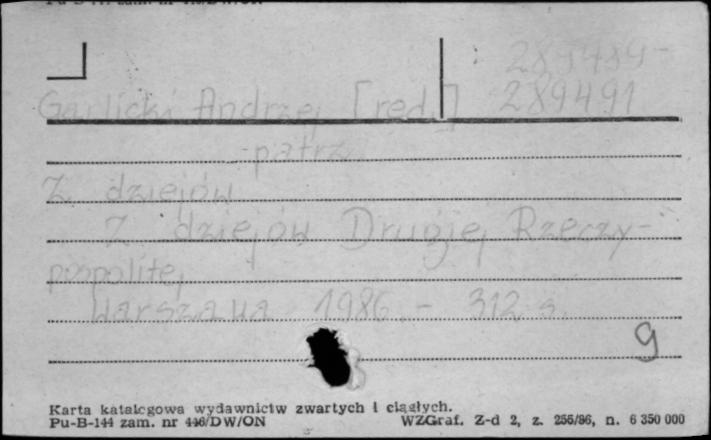 289489-
Garlicki Andrzej [red.] 289491
- patrz
Z dziejów
Z dziejów Drugiej Rzeczy-
pospolitej
Warszawa 1986.- 312 s.
9
Karta katalogowa wydawnictw zwartych i ciągłych.
Pu-B-144 zam. nr 446/DW/ON WZGraf. Z-d 2, z. 255/86, n. 6 350 000